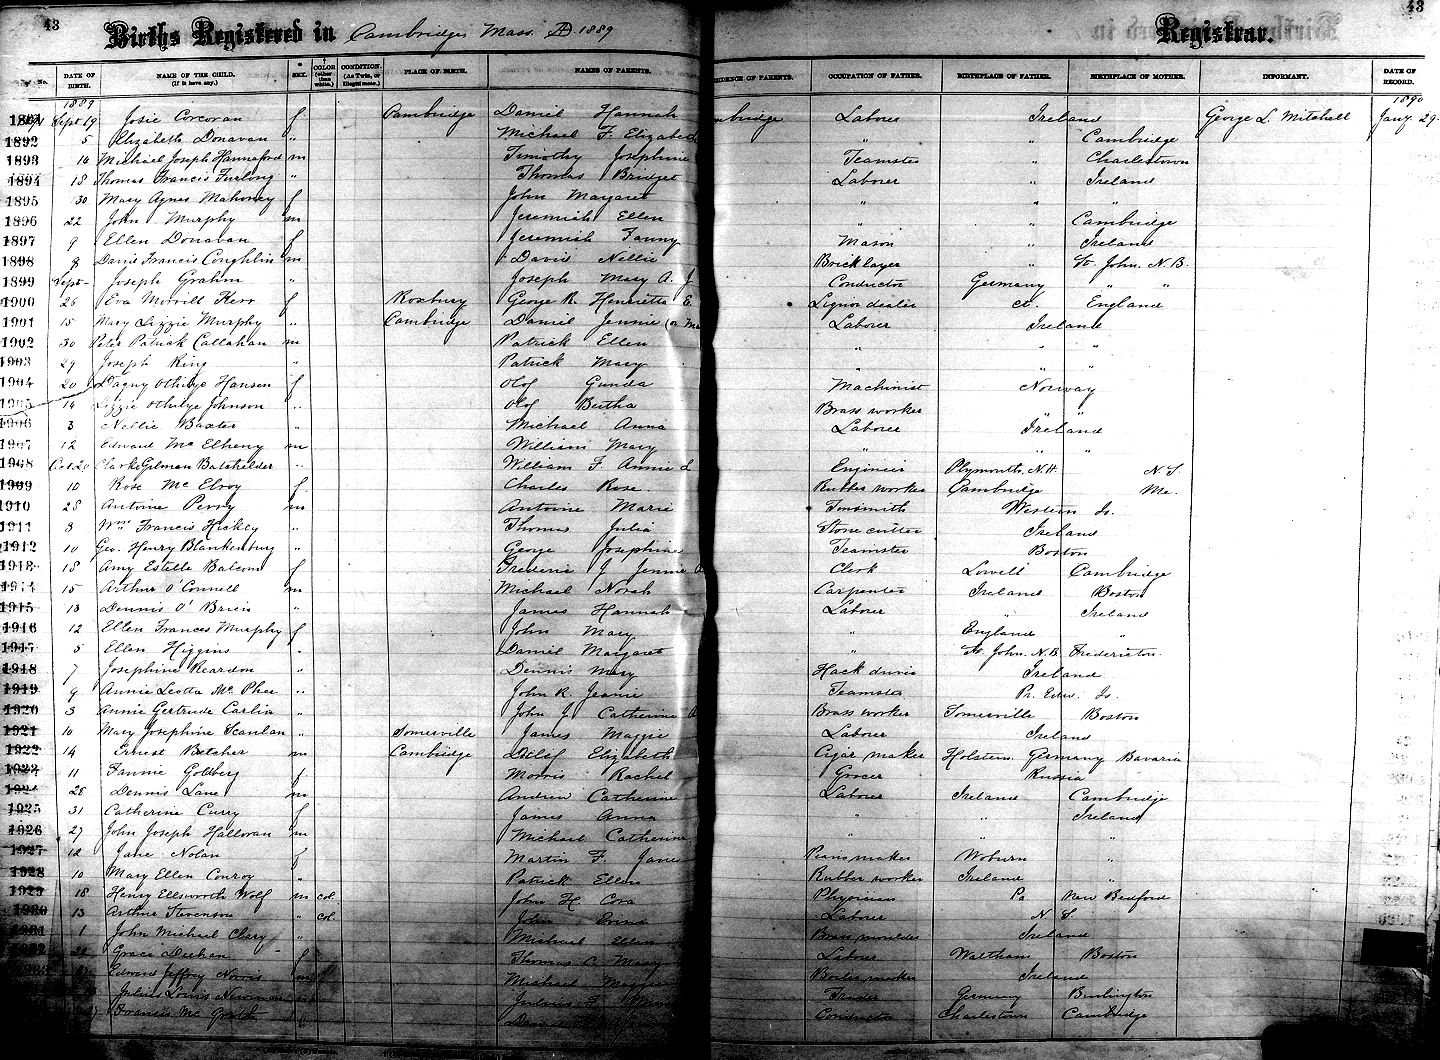 43
Births Registered in Cambridge Mass. AD 1889
Registrar.
43
No. DATE OF BIRTH. NAME OF THE CHILD. (If it have any.) SEX. COLOR (other than white.) CONDITION. (As Twin, or Illegitimate.) PLACE OF BIRTH. NAMES OF PARENTS. RESIDENCE OF PARENTS. OCCUPATION OF FATHER. BIRTHPLACE OF FATHER. BIRTHPLACE OF MOTHER. INFORMANT. DATE OF RECORD.
1889 1890
1891 Sept 19 Josie Corcoran f Cambridge Daniel Hannah Cambridge Laborer Ireland George L. Mitchell Jany 29
1892 5 Elizabeth Donavan " Michael F. Elizabeth " " Cambridge
1893 16 Michael Joseph Hannaford m Timothy Josephine Teamster " Charlestown
1894 18 Thomas Francis Furlong " Thomas Bridget Laborer " Ireland
1895 30 Mary Agnes Mahoney f John Margaret " " "
1896 22 John Murphy m Jeremiah Ellen " " Cambridge
1897 9 Ellen Donavan f Jeremiah Fanny Mason " Ireland
1898 8 David Francis Coughlin m David Nellie Bricklayer " St. John, N.B.
1899 Sept - Joseph Grahm " Joseph Mary A. J Conductor Germany " "
1900 26 Eva Morrill Kerr f Roxbury George R. Henrietta E. Liquor dealer Ct. England
1901 15 Mary Lizzie Murphy " Cambridge Daniel Jennie (or Ma Laborer Ireland
1902 30 Peter Patrick Callahan m Patrick Ellen " " "
1903 29 Joseph King " Patrick Mary " " "
1904 20 Dagny Othilye Hansen f Olof Gunda Machinist Norway
1905 14 Lizzie Othilye Johnson " Olof Bertha Brass worker " "
1906 3 Nellie Baxter " Michael Anna Laborer Ireland
1907 12 Edward McElheny m William Mary " " "
1908 Oct 20 Clarke Gilman Batchelder " William F. Annie L Engineer Plymouth, N.H. N.S.
1909 10 Rose McElroy f Charles Rose Rubber worker Cambridge Me.
1910 28 Antoine Perry m Antoine Marie Tinsmith Western Is.
1911 3 Wm Francis Hickey " Thomas Julia Stone cutter Ireland
1912 10 Geo. Henry Blankenburg " George Josephine Teamster Boston
1913 18 Amy Estelle Balcom f Frederic J. Jennie Clerk Lowell Cambridge
1914 15 Arthur O'Connell m Michael Norah Carpenter Ireland Boston
1915 13 Dennis O'Brien " James Hannah Laborer " Ireland
1916 12 Ellen Frances Murphy f John Mary " England "
1917 5 Ellen Higgins " Daniel Margaret " St. John, N.B. Fredericton
1918 7 Josephine Reardon " Dennis Mary Hack driver Ireland
1919 9 Annie Leotta McPhee " John R. Jeanie Teamster Pr. Edw. Is.
1920 3 Annie Gertrude Carlin " John J. Catherine A Brass worker Somerville Boston
1921 10 Mary Josephine Scanlan " Somerville James Maggie Laborer Ireland
1922 14 Ernest Belcher m Cambridge Detlef Elizabeth Cigar maker Holstein Germany Bavaria
1923 11 Fannie Goldberg f Morris Rachel Grocer Russia
1924 28 Dennis Lane m Andrew Catherine Laborer Ireland Cambridge
1925 31 Catherine Curry f James Anna " " Ireland
1926 27 John Joseph Halloran m Michael Catherine " " "
1927 12 Jane Nolan f Martin F. Jane Piano maker Woburn "
1928 10 Mary Ellen Conroy " Patrick Ellen Rubber worker Ireland "
1929 18 Henry Ellsworth Wolf m col. John H Cora Physician Pa New Bedford
1930 13 Arthur Stevenson " col. John Laborer N.S.
1931 1 John Michael Clary " Michael Ellen Brass moulder Ireland
1932 Grace Deehan f Thomas C. Mary Laborer Waltham Boston
1933 Edward Jeffrey Norris m Michael Maggie Boiler maker Ireland
Julius Louis Newman Julius F. Germany Burlington
Francis McGrath Conductor Charlestown Cambridge